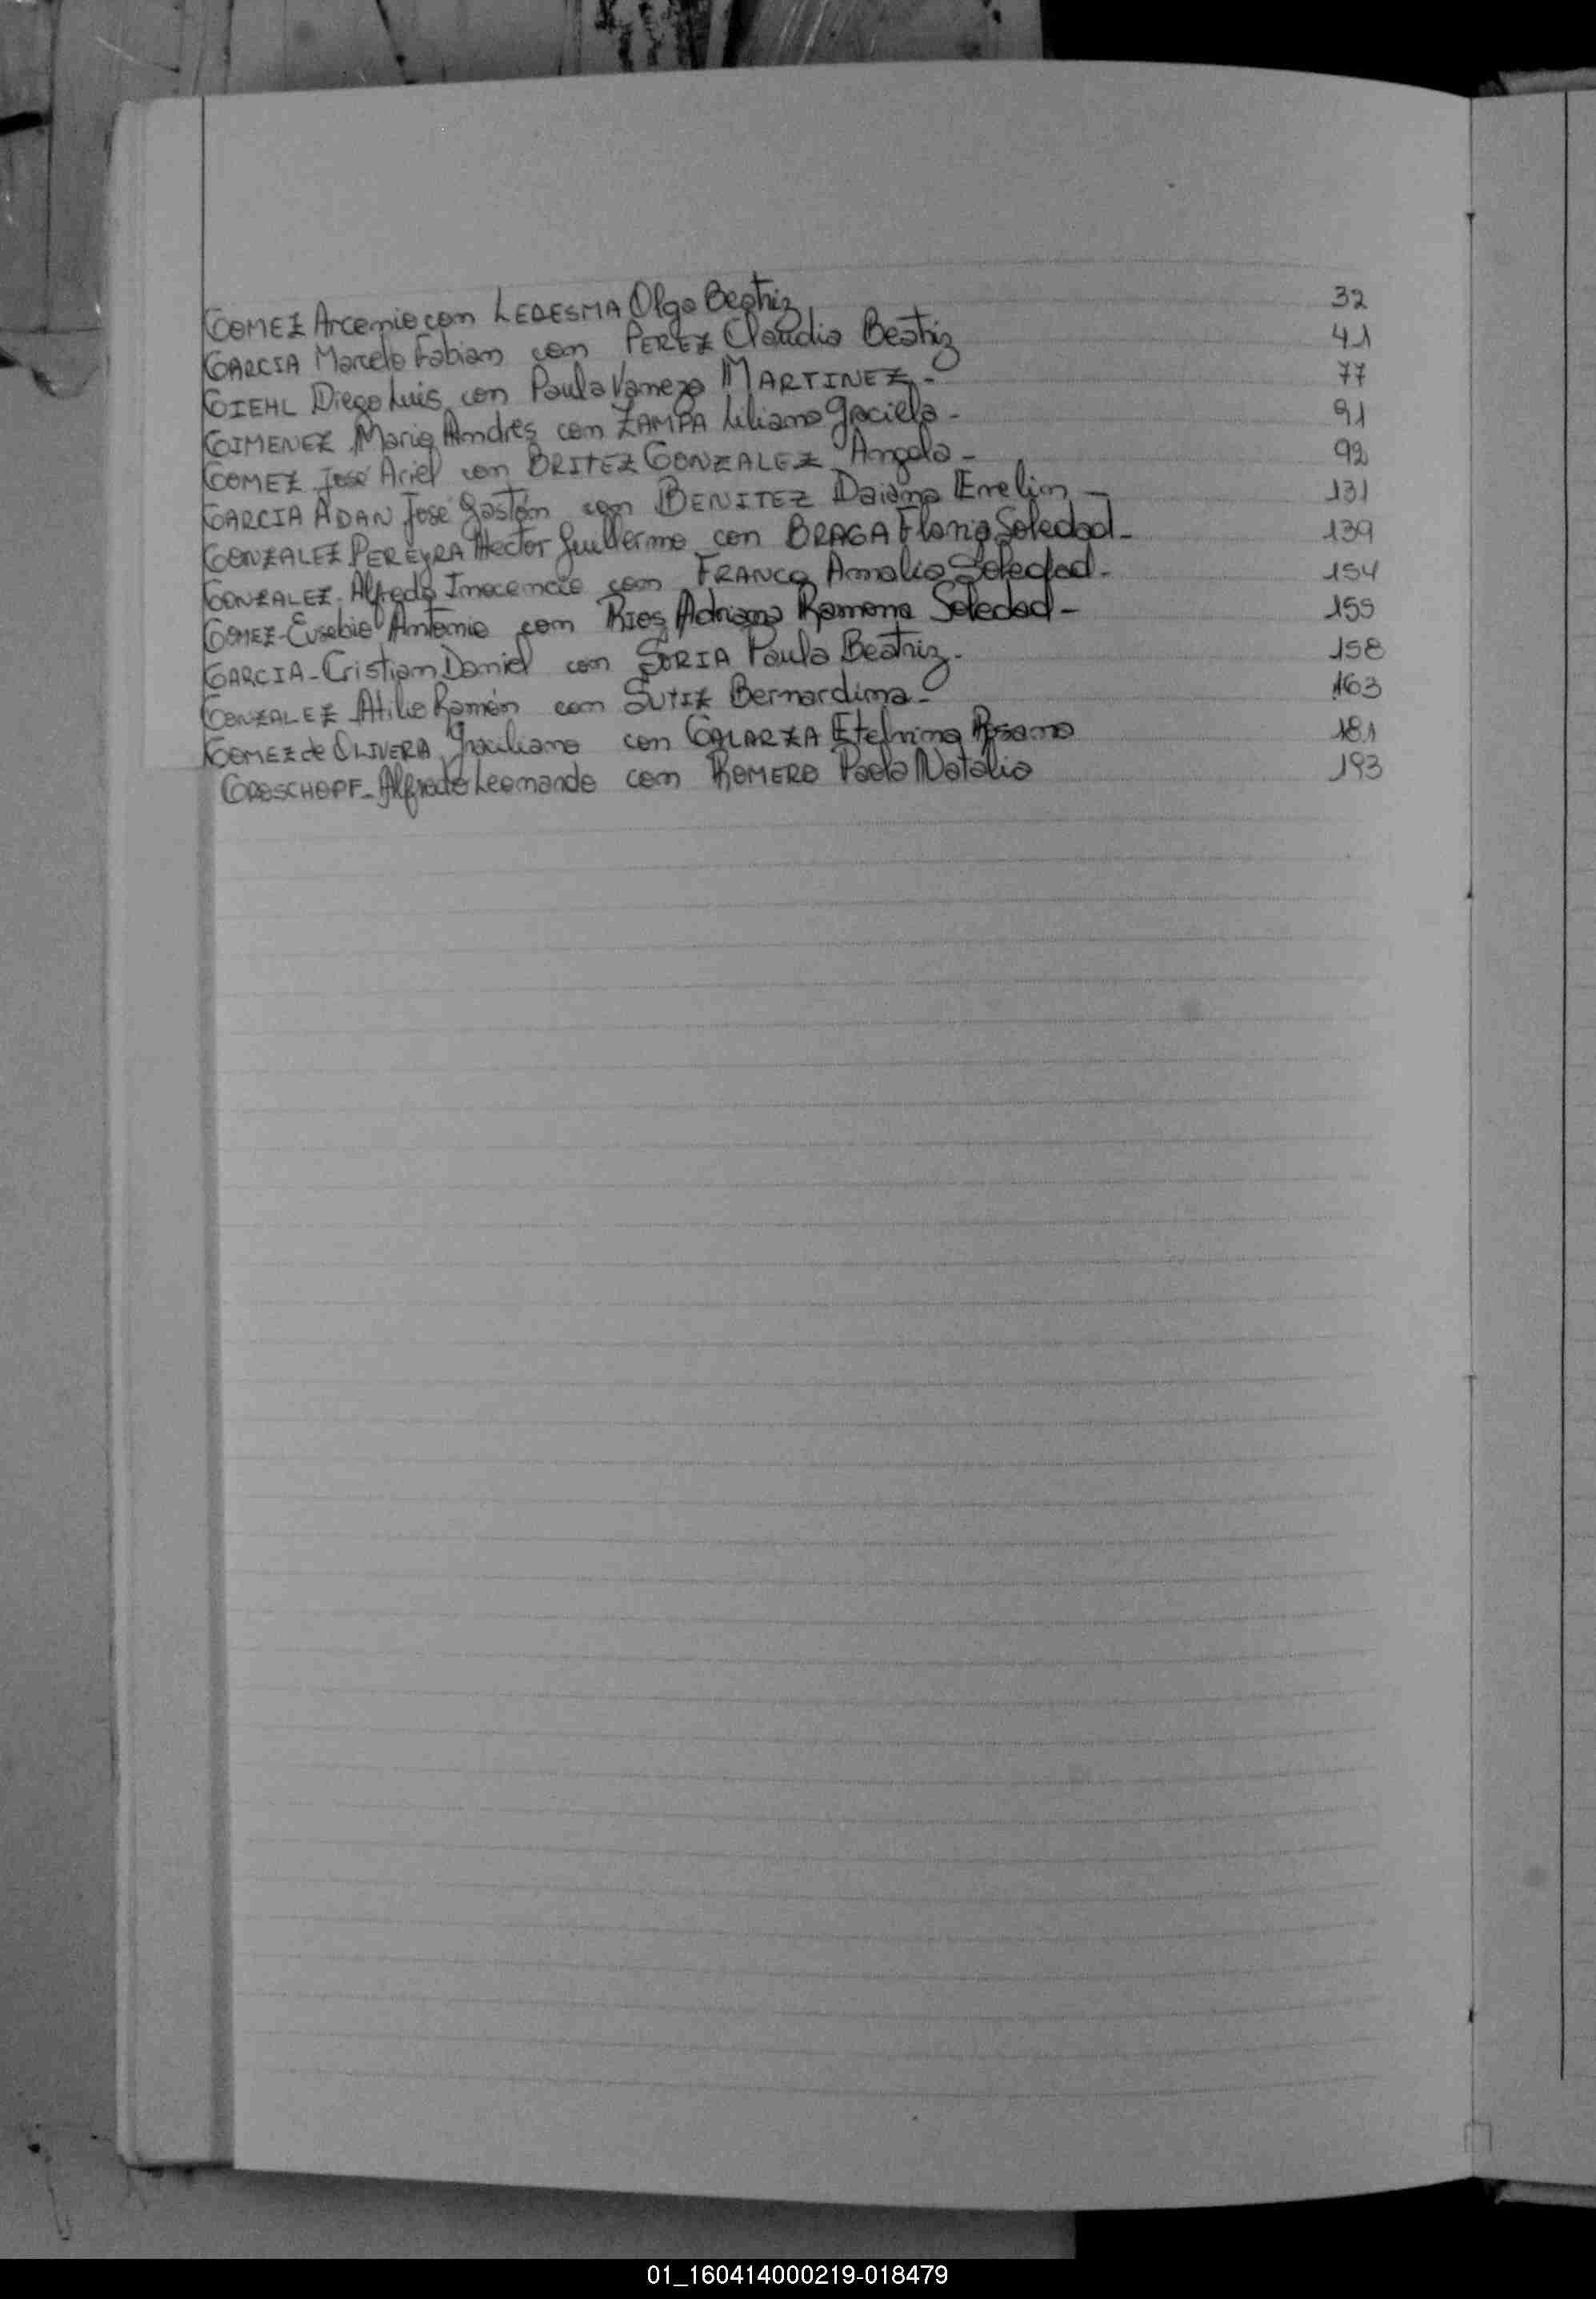 GOMEZ Arcenio con LEDESMA Olga Beatriz 32
GARCIA Marcelo Fabian con PEREZ Claudia Beatriz 41
GIEHL Diego Luis con Paula Vaneza MARTINEZ - 77
GIMENEZ Mario Andrés con ZAMPA Liliana Graciela - 91
GOMEZ José Ariel con BRITEZ GONZALEZ Angela - 92
GARCIA ADAN José Gastón con BENITEZ Daiana Evelin - 131
GONZALEZ PEREYRA Hector Guillermo con BRAGA Flavia Soledad - 139
GONZALEZ - Alfredo Inocencio con FRANCO Amalia Soledad - 154
GOMEZ - Eusebio Antonio con RIOS Adriana Ramona Soledad - 155
GARCIA - Cristian Daniel con SORIA Paula Beatriz - 158
GONZALEZ Atilio Ramón con Bernardina - 163
GOMEZ de OLIVERA Graciliano con GALARZA Etelvina Rosana 181
GROSCHOPF - Alfredo Leonardo con ROMERO Paola Natalia 193
01_160414000219-018479